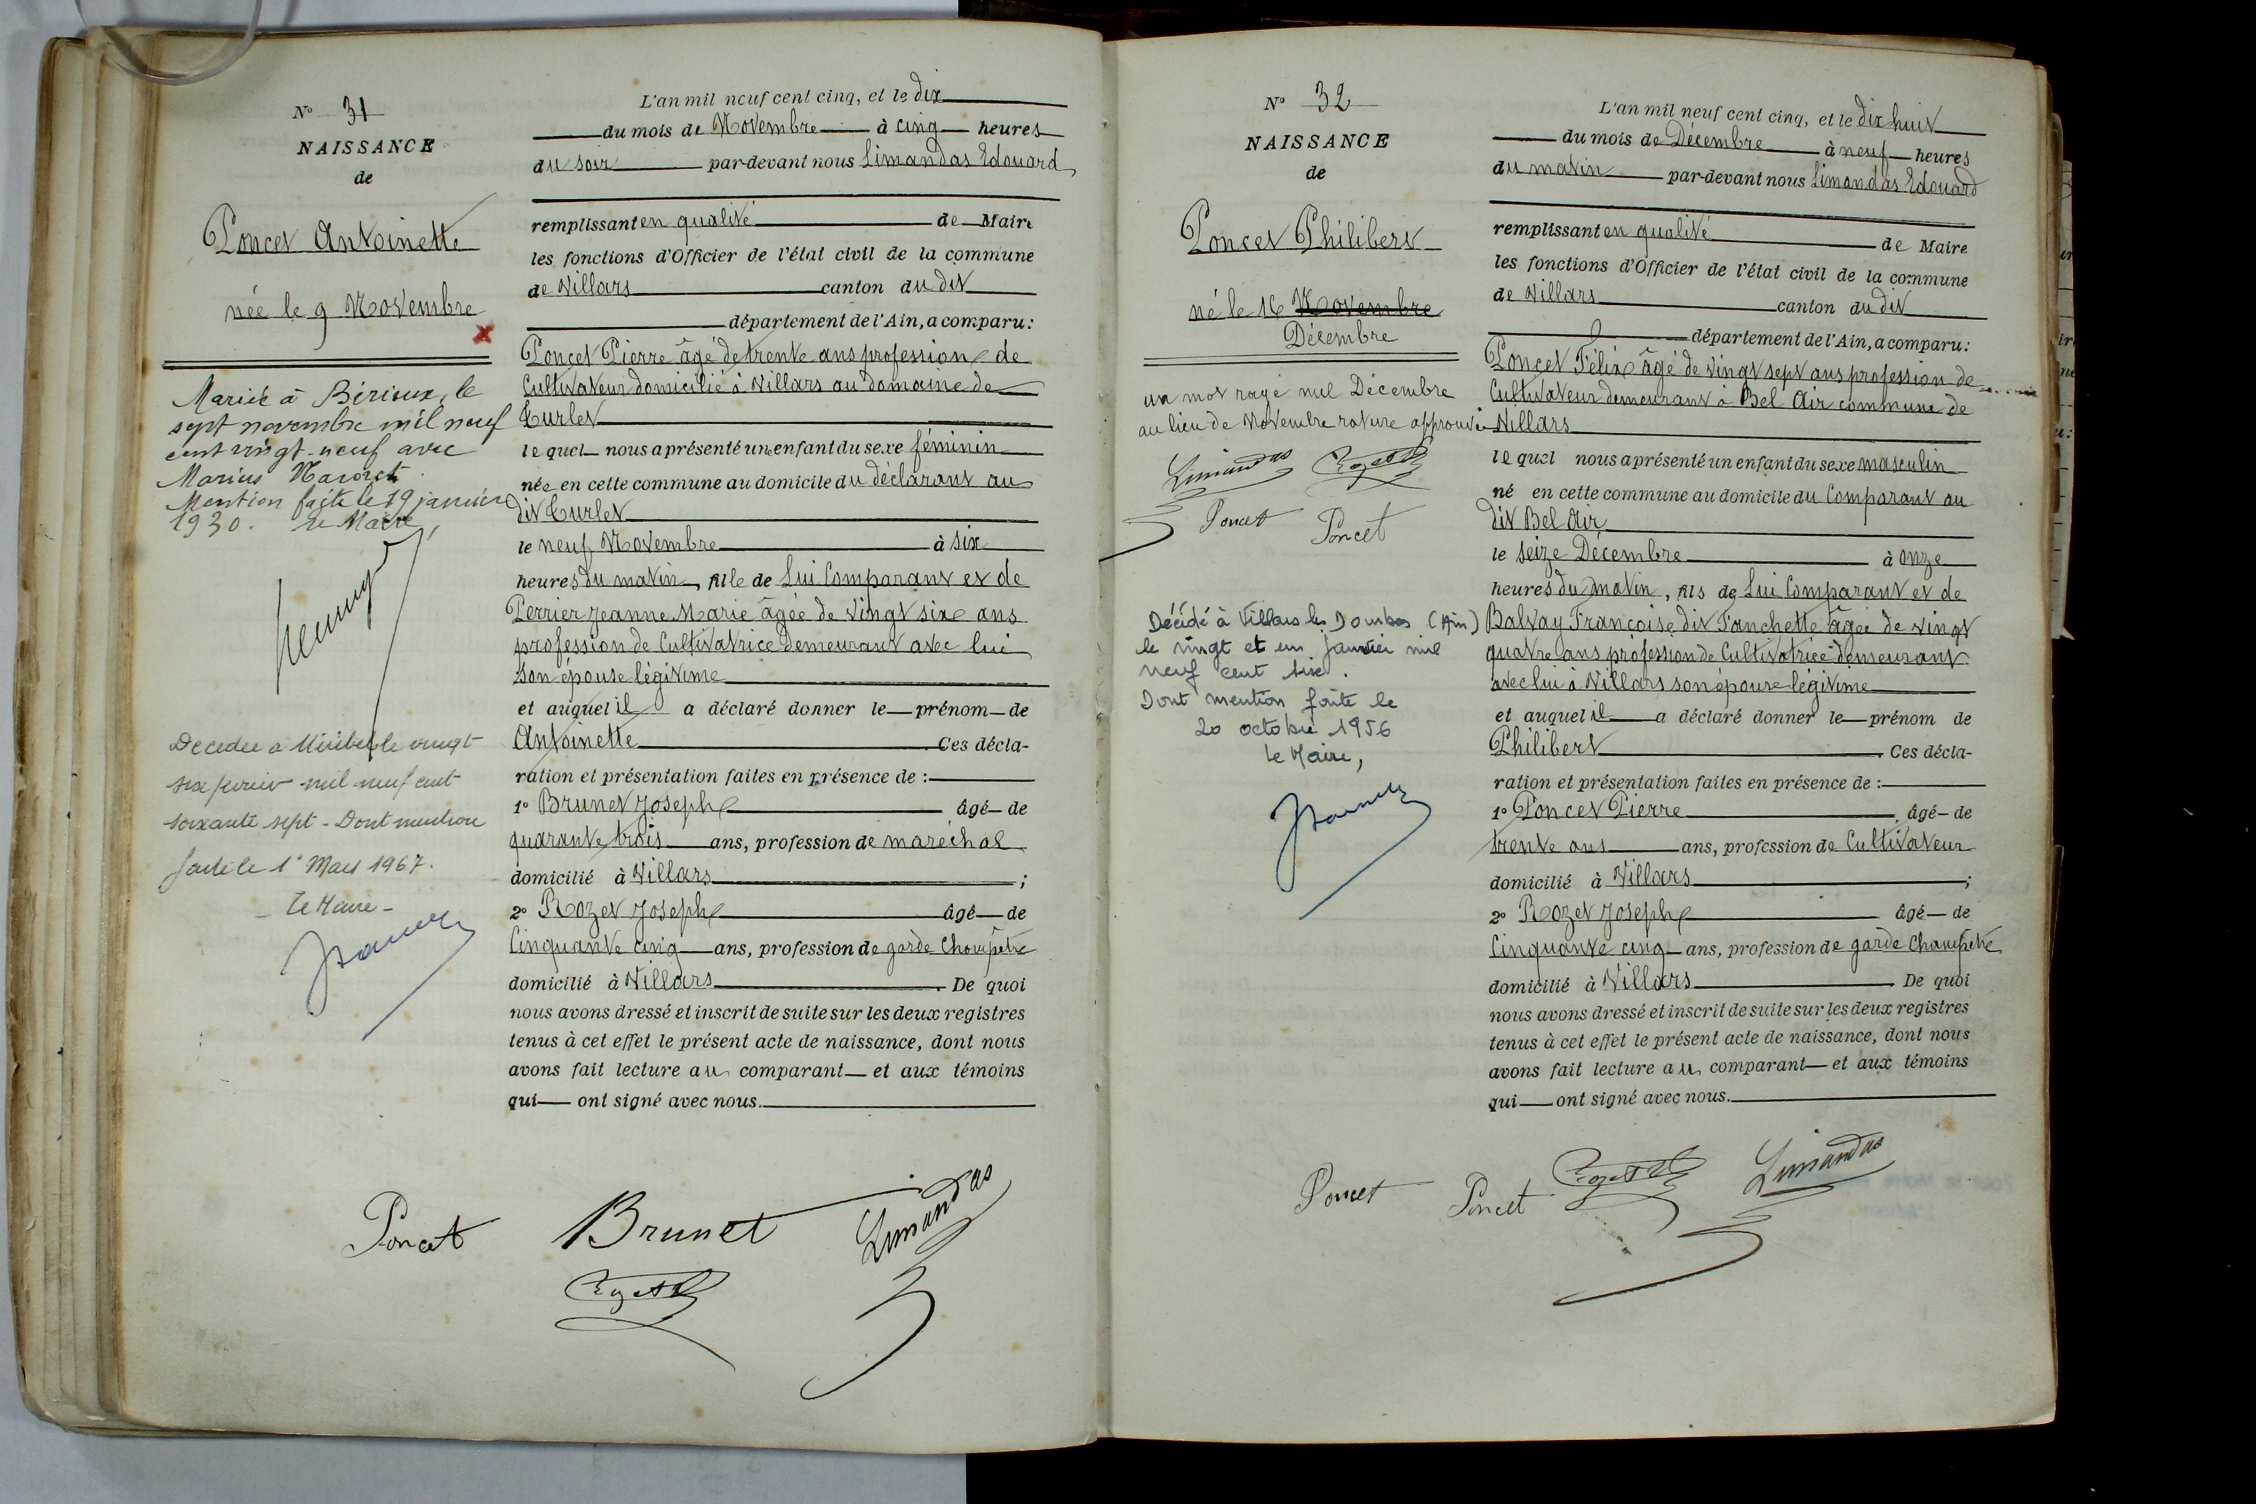 N° 31
NAISSANCE
de
Poncet Antoinette
née le 9 Novembre
Mariée à Bérieux, le
sept novembre mil neuf
cent vingt-neuf avec
Marius
Mention faite le 19 janvier
1930. Le Maire,
Décédée à Miribel le vingt
six février mil neuf cent
soixante sept - Dont mention
faite le 1° Mars 1967.
- Le Maire -
L'an mil neuf cent cinq, et le dix
du mois de Novembre à cinq heures
du soir par-devant nous Limandas Edouard
remplissant en qualité de Maire
les fonctions d'Officier de l'état civil de la commune
de Villars canton du dit
département de l'Ain, a comparu :
Poncet Pierre âgé de trente ans profession de
Cultivateur domicilié à Villars au domaine de
Curlet
lequel nous a présenté un enfant du sexe féminin
née en cette commune au domicile du déclarant au
dit Curlet
le neuf Novembre à six
heures du matin, fille de Lui Comparant et de
Perrier Jeanne Marie âgée de vingt six ans
profession de Cultivatrice demeurant avec lui
son épouse légitime
et auquel il a déclaré donner le prénom de
Antoinette Ces décla-
ration et présentation faites en présence de :
1° Brunet Joseph âgé de
quarante trois ans, profession de maréchal
domicilié à Villars ;
2° Rozet Joseph âgé de
Cinquante cinq ans, profession de garde Champêtre
domicilié à Villars. De quoi
nous avons dressé et inscrit de suite sur les deux registres
tenus à cet effet le présent acte de naissance, dont nous
avons fait lecture au comparant et aux témoins
qui ont signé avec nous.
Poncet Brunet Limandas
Rozet
N° 32
NAISSANCE
de
Poncet Philibert
né le 16 Novembre
Décembre
un mot rayé nul Décembre
au lieu de Novembre rature approuvée
Limandas Rozet
Poncet Poncet
Décédé à Villars les Dombes (Ain)
le vingt et un janvier mil
neuf cent six.
Dont mention faite le
20 octobre 1956
Le Maire,
L'an mil neuf cent cinq, et le dix huit
du mois de Décembre à neuf heures
du matin par-devant nous Limandas Edouard
remplissant en qualité de Maire
les fonctions d'Officier de l'état civil de la commune
de Villars canton du dit
département de l'Ain, a comparu :
Poncet Félix âgé de vingt sept ans profession de
Cultivateur demeurant à Bel Air commune de
Villars
lequel nous a présenté un enfant du sexe masculin
né en cette commune au domicile du Comparant au
dit Bel Air
le seize Décembre à onze
heures du matin, fils de Lui Comparant et de
Balvay Françoise dit Fanchette âgée de vingt
quatre ans profession de Cultivatrice demeurant
avec lui à Villars son épouse légitime
et auquel il a déclaré donner le prénom de
Philibert. Ces décla-
ration et présentation faites en présence de :
1° Poncet Pierre, âgé de
trente ans ans, profession de Cultivateur
domicilié à Villars ;
2° Rozet Joseph âgé de
Cinquante cinq ans, profession de garde Champêtre
domicilié à Villars. De quoi
nous avons dressé et inscrit de suite sur les deux registres
tenus à cet effet le présent acte de naissance, dont nous
avons fait lecture au comparant et aux témoins
qui ont signé avec nous.
Poncet Poncet Rozet Limandas